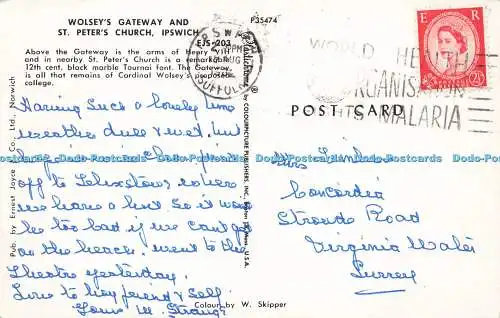 WOLSEY'S GATEWAY AND
ST. PETER'S CHURCH, IPSWICH
EJS-203
P35474
Above the Gateway is the arms of Henry VIII
and in nearby St. Peter's Church is a remarkable
12th cent. black marble Tournai font. The Gateway
is all that remains of Cardinal Wolsey's proposed
college.
Having such a lovely time
weather dull & wet, but
off to Felixstowe where
we have a hut. So it won't
be too bad if we can't go
on the beach. went to the
theatre yesterday.
Love to boy friend & self.
Yours M. Strange
Colour by W. Skipper
Pub. by Ernest Joyce & Co., Ltd., Norwich
COLOURPICTURE PUBLISHERS, INC.
U.S.A.
SUFFOLK
E R
2½
WORLD HEALTH
ORGANISATION
MALARIA
POST CARD
Mrs
Concordia
Stroude Road
Virginia Water
Surrey
Dodo-Postcards